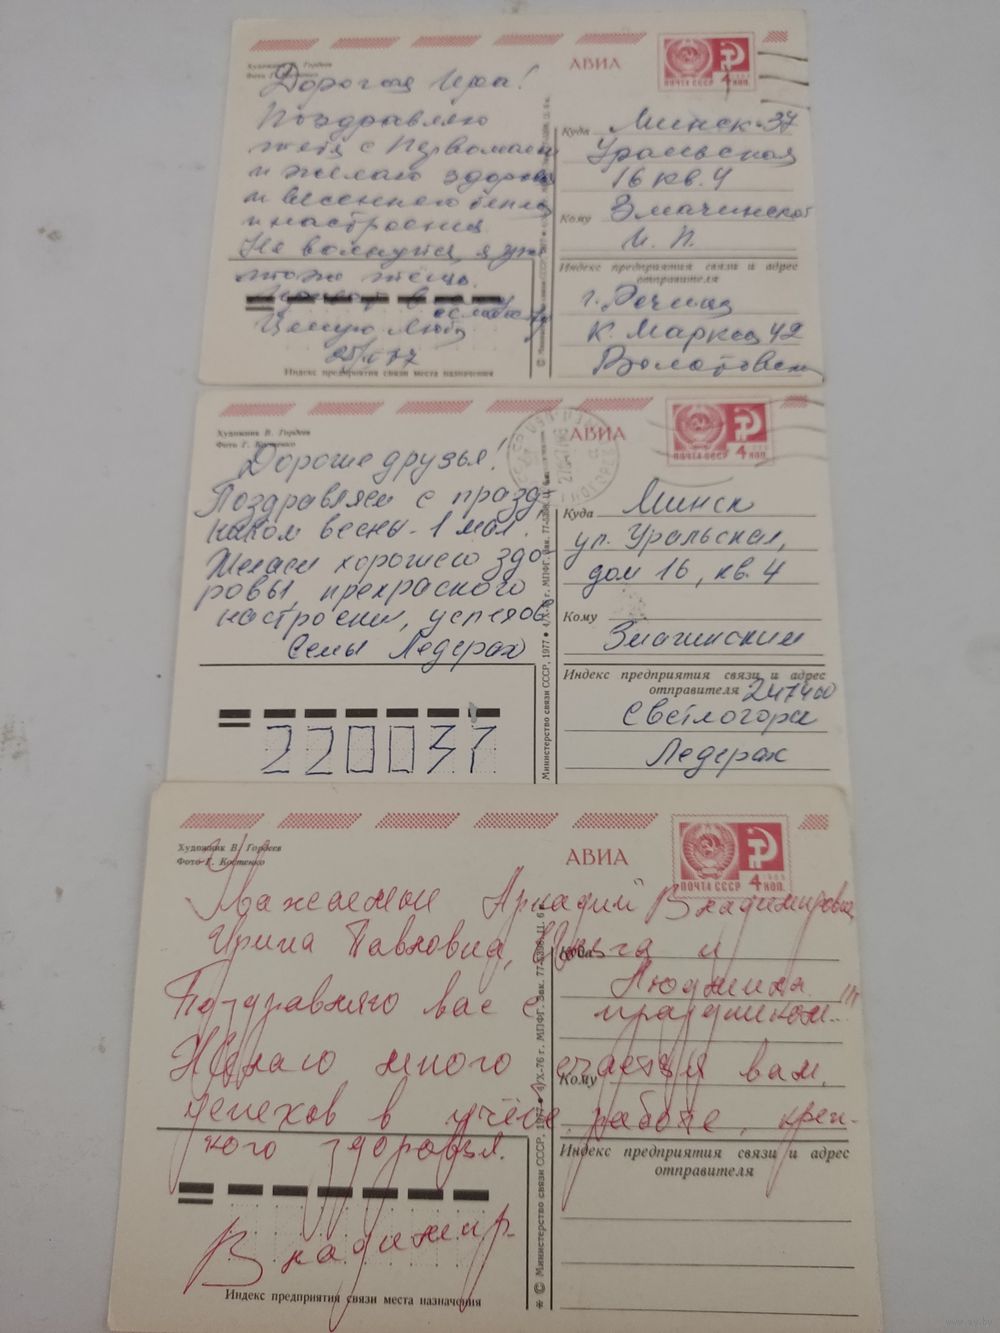 Художник В. Гордеев
Фото Г. Костенко
АВИА
ПОЧТА СССР 4 КОП.
Дорогая Ира!
Поздравляю
тебя с Первомаем
и желаю здоровья
и весеннего тепла
и настроения.
Не волнуйся, я уж
Целую Люба
Куда Минск-37
Уральская
16 кв. 4
Кому Змачинской
И. П.
Индекс предприятия связи и адрес
отправителя
г. Речица
К. Маркса 42
Индекс предприятия связи места назначения
Художник В. Гордеев
Фото Г. Костенко
АВИА
ПОЧТА СССР 4 КОП.
Дорогие друзья!
Поздравляем с празд
ником весны - 1 мая.
Желаем хорошего здо-
ровья, прекрасного
настроения, успехов
Семья Ледерах
220037
Министерство связи СССР, 1977
Куда Минск
ул. Уральская,
дом 16, кв. 4
Кому
Змачинским
Индекс предприятия связи и адрес
отправителя 247400
Светлогорск
Ледерах
Художник В. Гордеев
Фото Г. Костенко
АВИА
ПОЧТА СССР 1966 4 КОП.
Уважаемые Аркадий Владимирович,
Ирина Павловна, и
Людмила
Поздравляю вас с праздником..!!!
Желаю много счастья вам,
успехов в учёбе, работе, креп-
кого здоровья.
Владимир.
Куда
Кому
Индекс предприятия связи и адрес
отправителя
Индекс предприятия связи места назначения
* © Министерство связи СССР, 1977 ● 4/X-76 г. МПФГ. Зак. 77-5398. Ц. 6 к.